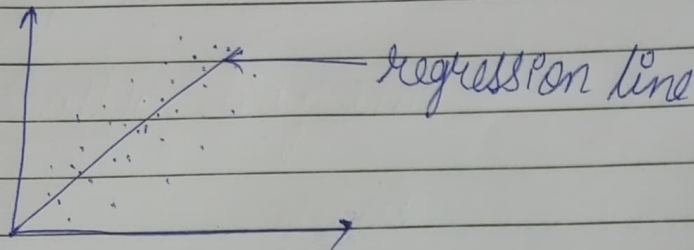 regression line